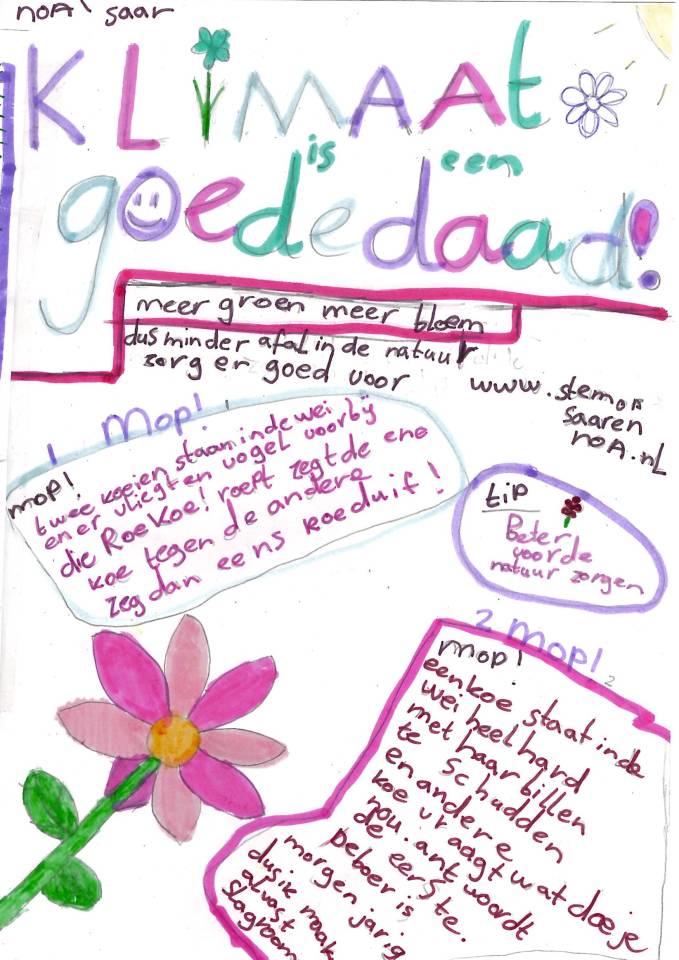 noA saar
KLiMAAt
is een
goededaad!
meer groen meer bloem
dus minder afal in de natuur
zorg er goed voor
www.stemop
saaren
noA.nL
1 Mop!
mop!
twee koeien staan in de wei
en er vliegt en vogel voorbij
die Roekoe! roept zegt de ene
koe tegen de andere
zeg dan eens koeduif!
tip
Beter
voor de
natuur zorgen
2 Mop!
mop!
een koe staat in de
wei heel hard
met haar billen
te schudden
en andere
koe vraagt wat doe je
nou. antwoordt
de eerste.
De boer is
morgen jarig
dus ik maak
alvast
slagroom